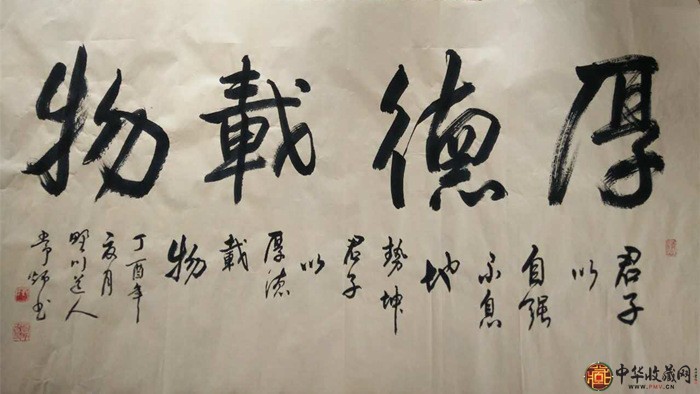 厚德載物
君子
以
自强
不息
地
勢坤
君子
以
厚德
載
物
丁酉年
夏月
野川道人
常炳书
中华收藏网
WWW.PMV.CN